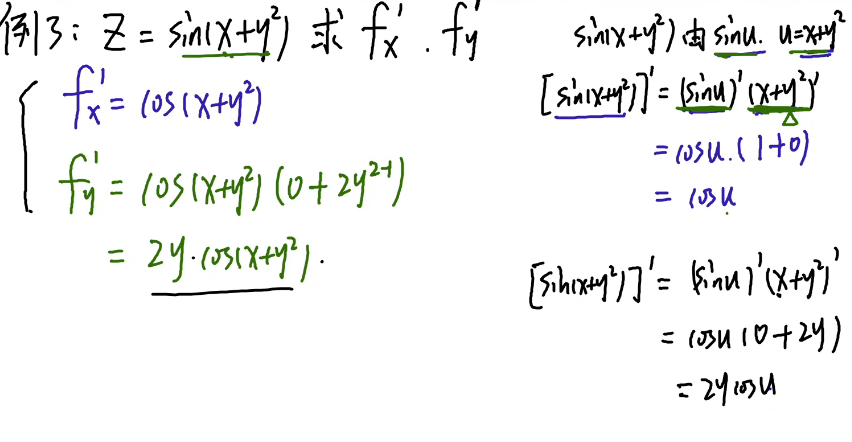 例3: Z = sin(x+y²) 求 fx′ . fy′
fx′ = cos(x+y²)
fy′ = cos(x+y²)(0+2y²⁻¹)
= 2y·cos(x+y²).
sin(x+y²) 由 sinu. u=x+y²
[sin(x+y²)]′ = (sinu)′(x+y²)′
= cosu.(1+0)
= cosu
[sin(x+y²)]′ = (sinu)′(x+y²)′
= cosu(0+2y)
= 2ycosu